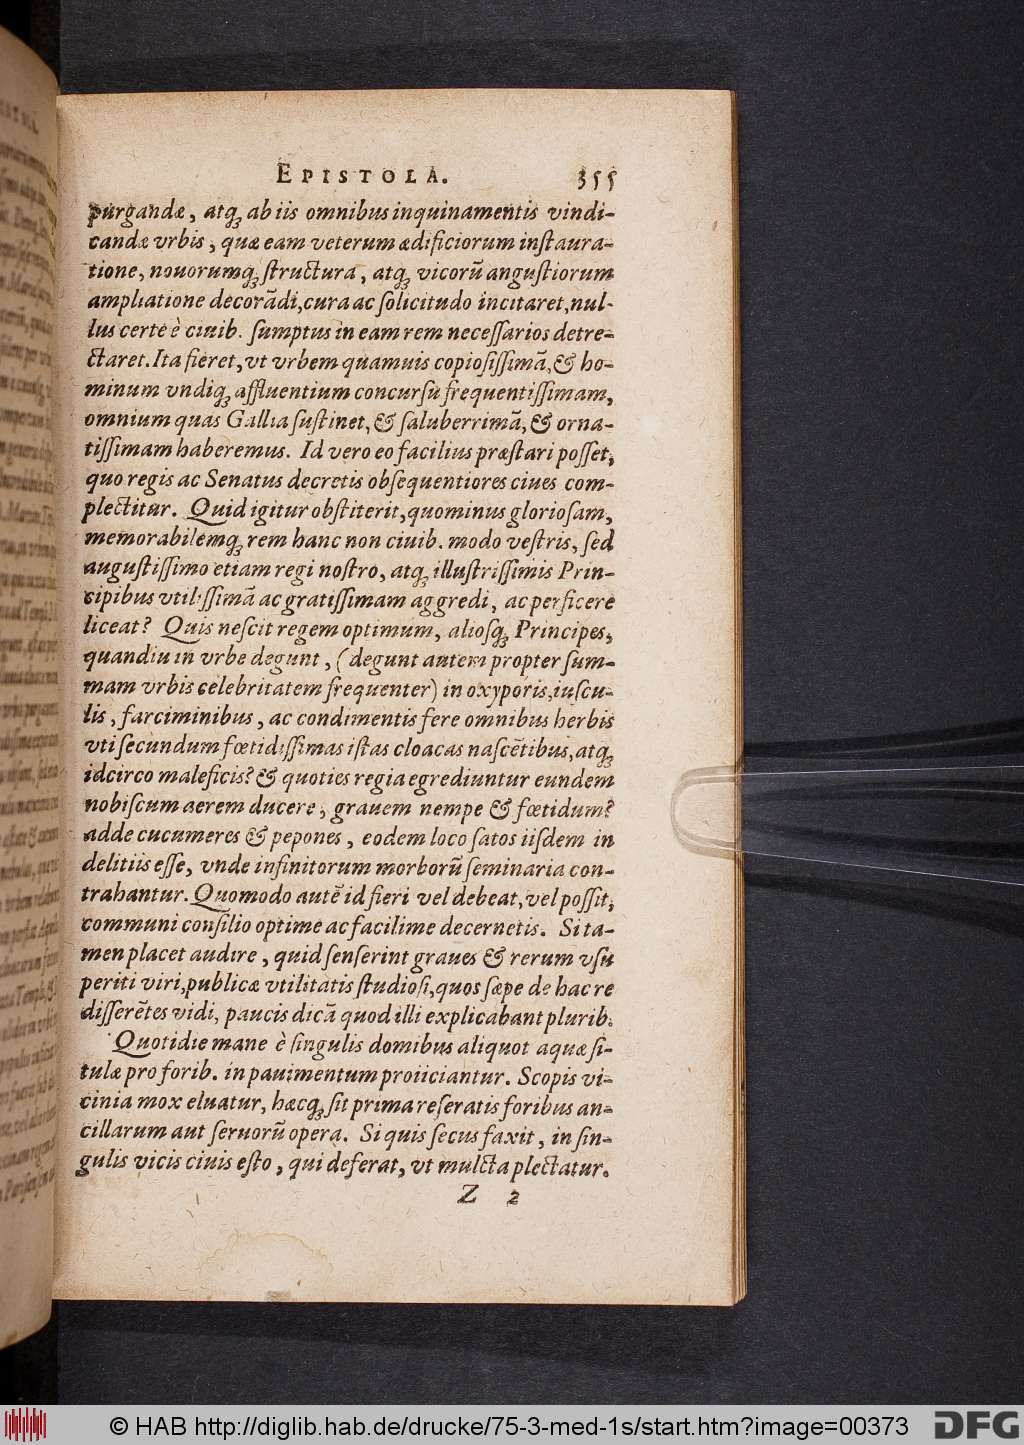 EPISTOLA. 355
purgandæ, atq́ꝫ ab iis omnibus inquinamentis vindi-
candæ vrbis, quæ eam veterum ædificiorum inſtaura-
tione, nouorumq́ꝫ ſtructura, atq́ꝫ vicorũ anguſtiorum
ampliatione decorãdi, cura ac ſolicitudo incitaret, nul-
lus certè è ciuib. ſumptus in eam rem neceſſarios detre-
ctaret. Ita fieret, vt vrbem quamuis copioſiſſimã, & ho-
minum vndiq́ꝫ affluentium concurſu frequentiſſimam,
omnium quas Gallia ſuſtinet, & ſaluberrimã, & orna-
tiſſimam haberemus. Id vero eo facilius præſtari poſſet,
quo regis ac Senatus decretis obſequentiores ciues com-
plectitur. Quid igitur obſtiterit, quominus glorioſam,
memorabilemq́ꝫ rem hanc non ciuib. modo veſtris, ſed
auguſtiſſimo etiam regi noſtro, atq́ꝫ illuſtriſſimis Prin-
cipibus vtiliſſimã ac gratiſſimam aggredi, ac perficere
liceat? Quis neſcit regem optimum, alioſq́ꝫ Principes,
quandiu in vrbe degunt, (degunt autem propter ſum-
mam vrbis celebritatem frequenter) in oxyporis, iuſcu-
lis, farciminibus, ac condimentis fere omnibus herbis
vti ſecundum fœtidiſſimas iſtas cloacas naſcẽtibus, atq́ꝫ
idcirco maleficis? & quoties regia egrediuntur eundem
nobiſcum aerem ducere, grauem nempe & fœtidum?
adde cucumeres & pepones, eodem loco ſatos iiſdem in
delitiis eſſe, vnde infinitorum morborũ ſeminaria con-
trahantur. Quomodo autẽ id fieri vel debeat, vel poſſit,
communi conſilio optime ac facilime decernetis. Si ta-
men placet audire, quid ſenſerint graues & rerum vſu
periti viri, publicæ vtilitatis ſtudioſi, quos ſæpe de hac re
diſſerẽtes vidi, paucis dicã quod illi explicabant plurib.
Quotidie mane è ſingulis domibus aliquot aquæ ſi-
tulæ pro forib. in pauimentum proiiciantur. Scopis vi-
cinia mox eluatur, hæcq́ꝫ ſit prima reſeratis foribus an-
cillarum aut ſeruorũ opera. Si quis ſecus faxit, in ſin-
gulis vicis ciuis eſto, qui deferat, vt mulcta plectatur.
Z 2
© HAB http://diglib.hab.de/drucke/75-3-med-1s/start.htm?image=00373
DFG